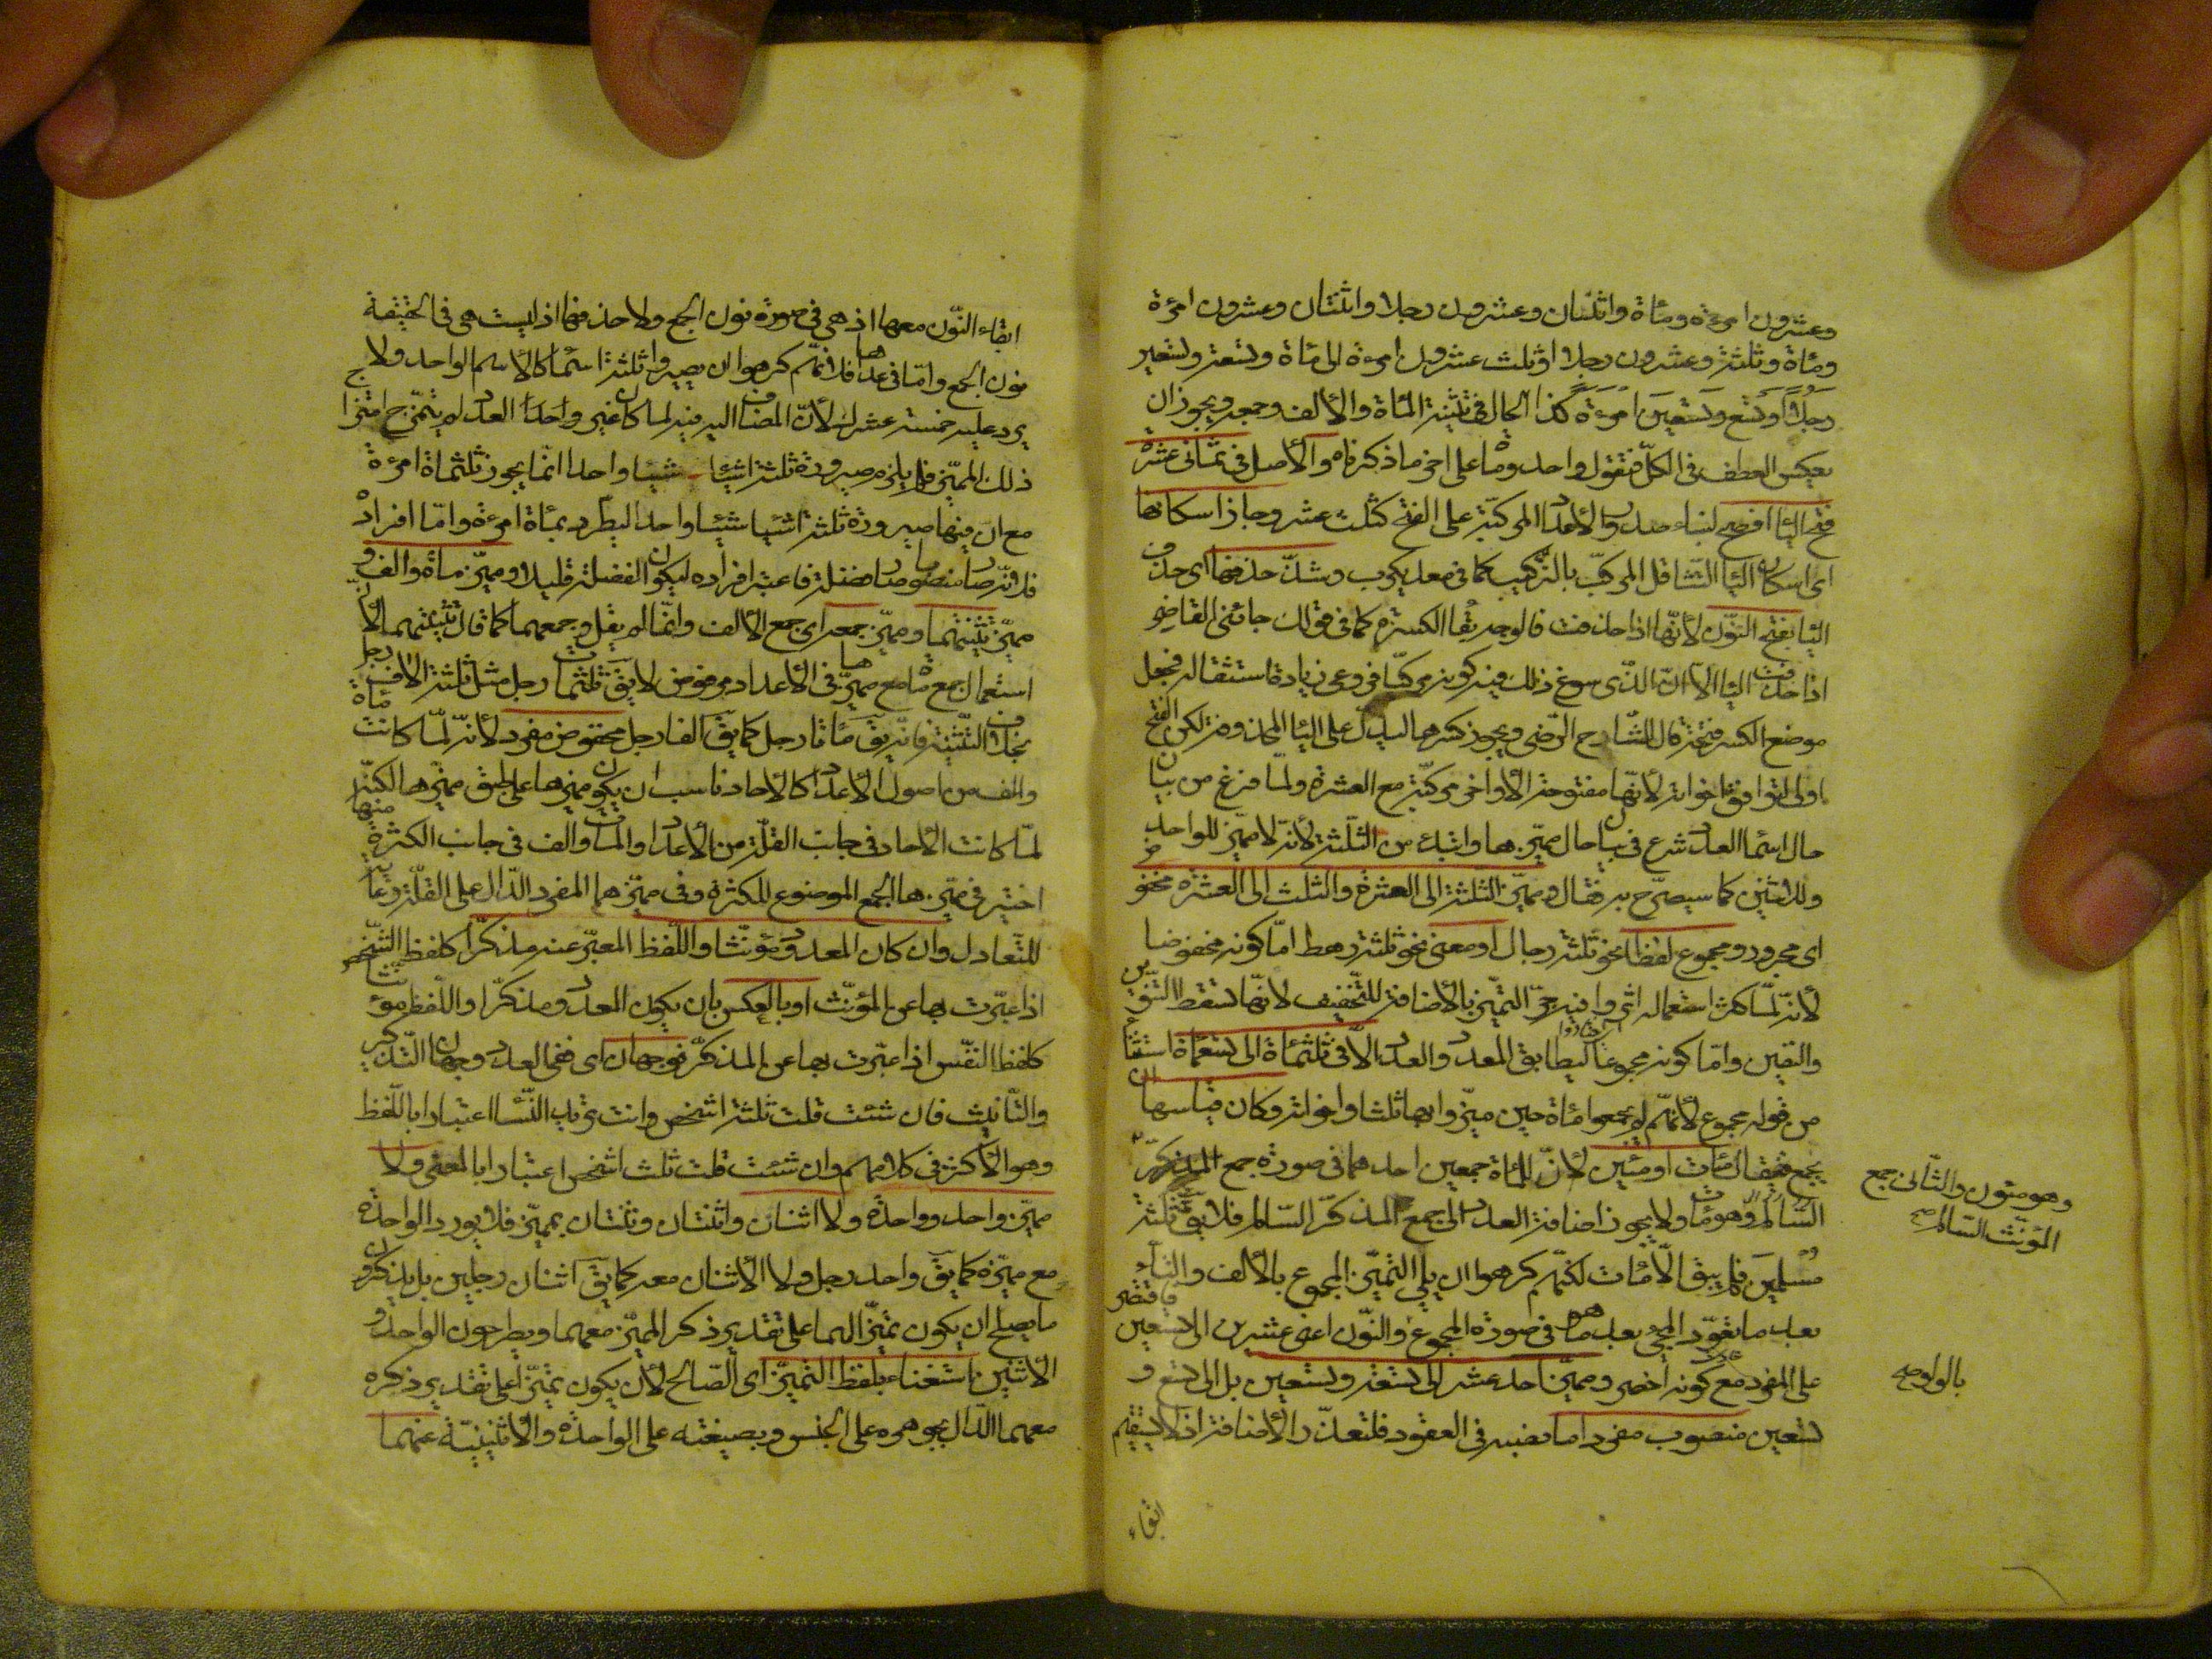 وعشرون امرءة ومائة واثنان وعشرون رجلا واثنتان وعشرون امرءة
ومائة وثلثة وعشرون رجلا او ثلث عشرون امرءة الى مائة وتسعة وتسعين
رجلا او تسع وتسعين امرءة كذا الحال في تثنية المائة والألف وجمعه ويجوز ان
يعكس العطف في الكل فتقول واحد ومائة على اخر ما ذكرناه والأصل في ثماني عشرة
فتح الياء لبناء صدور الأعداد المركبة على الفتح كثلث عشر وجاز اسكانها
اى اسكان الياء لتثاقل المركب بالتركيب كما في معديكرب وشذ حذفها اى حذف
الياء بفتح النون لأنها اذا حذفت فالوجه بقاء الكسرة كما في قولك جائني القاض
اذا حذفت الياء الا ان الذى سوغ ذلك فيه كونه مركبا فروعى زيادة استثقاله فجعل
موضع الكسر فتحة قال الشارح الرضى ويجوز كسرها ليدل على الياء المحذوفة لكن الفتح
اولى لتوافق اخواته لأنها مفتوحة الأواخر مركبة مع العشرة ولما فرغ من بيان
حال اسماء العدد شرع في بيان حال مميزها وابتداء من الثلثة لأنه لا مميز للواحد
وللاثنين كما سيصرح به فقال ومميز الثلثة الى العشرة والثلث الى العشرة مخفوض
اى مجرور ومجموع لفظا نحو ثلثة رجال او معنى نحو ثلثة رهط اما كونه مخفوضا
لأنه لما كثر استعماله اثروا فيه جر التميز بالأضافة للتخفيف لانها تسقط التنوين
والنونين واما كونه مجموعا ليطابق المعدود العدد الا في ثلثمائة الى تسعمائة استثناء
من قوله مجموع لأنهم لم يجمعوا مائة حين ميزوا بها ثلثا واخواته وكان قياسها ان
يجمع فيقال مئات او مئين لأن للمائة جمعين احدهما في صورة جمع المذكر
السالم وهو مئات ولا يجوز اضافة العدد الى جمع المذكر السالم فلا يق ثلثة
مسلمين فلم يبق الا مئات لكنهم كرهوا ان يلى التميز المجموع بالألف والتاء
بعد ما تعود المجئ بعد ما هو في صورة المجموع والنون اعنى عشرين الى تسعين فاقتصر
على المفرد مع كونه اخصر ومميز احد عشر الى تسعة وتسعين بل الى تسع و
تسعين منصوب مفرد اما نصبه في العقود فلتعذر الأضافة اذ لا يستقيم
ابقاء
وهو مئون والثانى جمع
المؤنث السالم صح
بالواو صح
ابقاء النون معها اذ هى في صورة نون الجمع ولا حذفها اذ ليست هى في الحقيقة
نون الجمع واما في عداها فلانهم كرهوا ان يصيروا ثلثة اسماء كالأسم الواحد ولا
يرد عليه خمسة عشرك لأن المضاف اليه فيه لما كان غير واحد العدد لم يتمزج امتزاج
ذلك المميز فلم يلزم صيرورة ثلثة اشياء شيئا واحدا انما يجوز ثلثمائة امرءة
مع ان فيها صيرورة ثلثة اشياء شيئا واحدا ليطرد بمائة امرءة واما افراده
فلانه لما صار منصوبا صار فضلة فاعتبر افراده ليكون الفضلة قليلا ومميز مائة والف و
مميز تثنيتهما ومميز جمعه اى جمع الألف وانما لم يقل وجمعهما كما قال تثنيتهما لأن
استعمال جمع مائة مع مميزها في الأعداد مرفوض لا يق ثلث مئات رجل مثل ثلثة الاف رجل
بخلاف التثنية فانه يق مائتا رجل كما يق الفا رجل مخفوض مفرد لأنه لما كانت مائة
والف من اصول الأعداد كالأحاد ناسب ان يكون مميزها على طبق مميزها لكنه
لما كانت الأحاد في جانب القلة من الأعداد والمائة والف في جانب الكثرة منها
اختير في مميزها الجمع الموضوع للكثرة وفي مميزهما المفرد الدال على القلة رعاية
للتعادل وان كان المعدود مؤنثا واللفظ المعبر عنه مذكرا كلفظ الشخص
اذا عبرت بها عن المؤنث او بالعكس بان يكون المعدود مذكرا واللفظ مؤنث
كلفظ النفس اذا عبرت بها عن المذكر فوجهان اى ففى العدد وجهان التذكير
والتأنيث فان شئت قلت ثلثة اشخص وانت تريد النساء اعتبارا باللفظ
وهو الأكثر في كلامهم وان شئت قلت ثلث اشخص اعتبارا بالمعنى ولا
مميز واحد وواحدة ولا اثنان واثنتان وثنتان بمميز فلا يورد الواحدة
مع مميزه كما يق واحد رجل ولا الأثنان معه كما يق اثنان رجلين بل يذكرون
ما يصلح ان يكون تميزا لهما على تقدير ذكر المميز معهما ويطرحون الواحد و
الأثنين استغناء بلفظ التميز اى الصالح لأن يكون تميزا على تقدير ذكره
معهما الدال بجوهره على الجنس وبصيغته على الواحدة والأثنينية عنهما